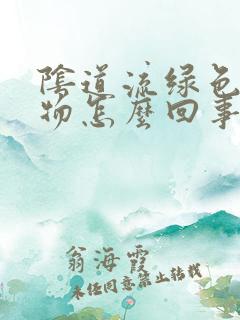 陰道流绿色
物怎麼回事
翁海霞
未任同意禁止转载